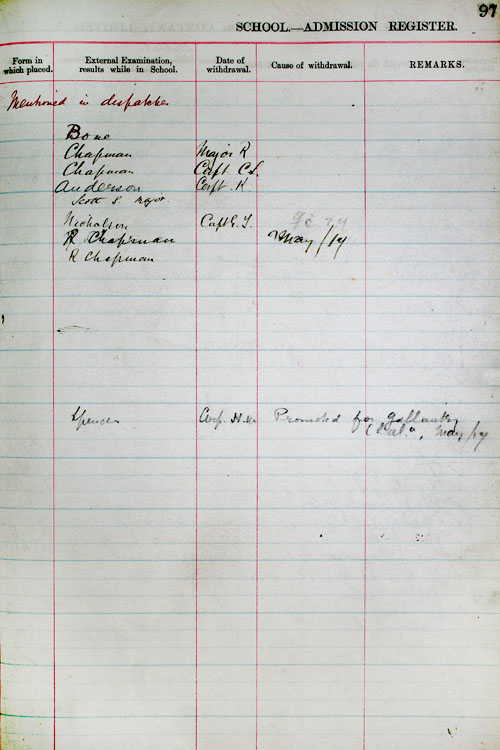 97
SCHOOL.—ADMISSION REGISTER.
Form in which placed. External Examination, results while in School. Date of withdrawal. Cause of withdrawal. REMARKS.
Mentioned in dispatches
Bone
Chapman Major R
Chapman Capt C.L.
Anderson Capt. K
Scott S. Major
Nicholson Capt E. T.
R Chapman May/17
R Chapman
Spencer Corp. Promoted for gallantry
May/17